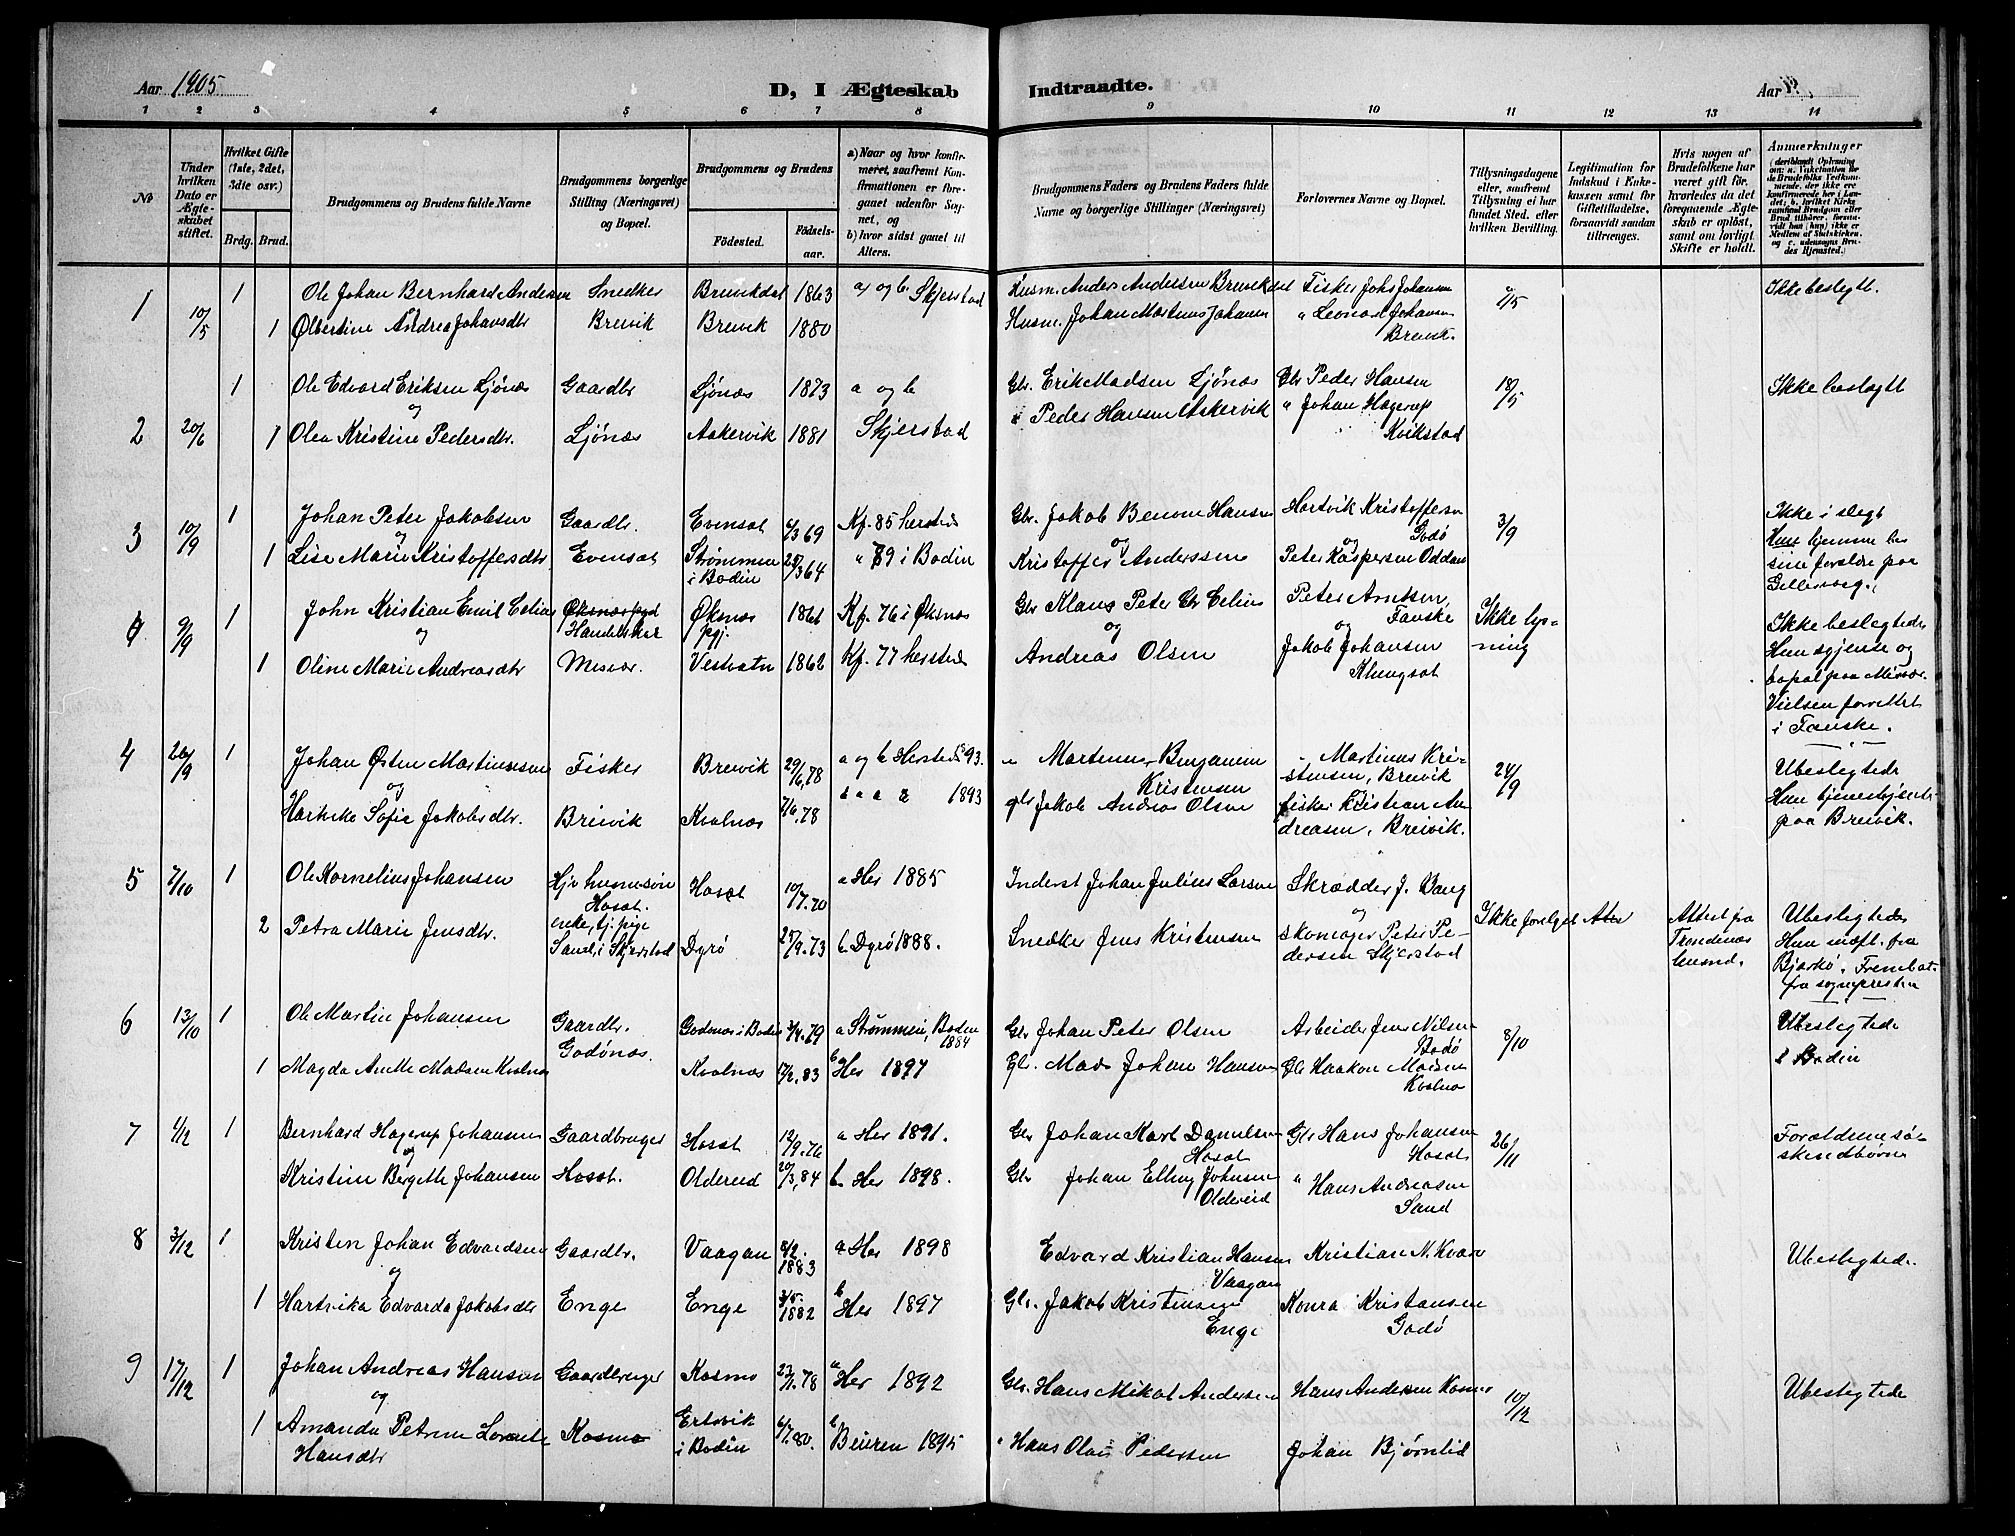 Aar 1905
D, I Ægteskab Indtraadte.
Aar
1 2 3 4 5 6 7 8 9 10 11 12 13 14
No
Under hvilken Dato er Ægteskabet stiftet.
Hvilket Gifte (1ste, 2det, 3die osv.)
Brdg. Brud.
Brudgommens og Brudens fulde Navne
Brudgommens borgerlige Stilling (Næringsvei) og Bopæl.
Brudgommens og Brudens
Fødested. Fødselsaar.
a) Naar og hvor konfirmeret, saafremt Konfirmationen er foregaaet udenfor Sognet, og
b) hvor sidst gaaet til Alters.
Brudgommens Faders og Brudens Faders fulde Navne og borgerlige Stillinger (Næringsvei)
Forlovernes Navne og Bopæl.
Tillysningsdagene eller, saafremt Tillysning ei har fundet Sted, efter hvilken Bevilling.
Legitimation for Indskud i Enkekassen samt for Giftetilladelse, forsaavidt saadan tiltrænges.
Hvis nogen af Brudefolkene har været gift før, hvorledes da det foregaaende Ægteskab er opløst, samt om lovligt Skifte er holdt.
Anmærkninger
1 10/5 1 Ole Johan Bernhard Andersen Snedker Breivikdal 1863 a og b. Skjerstad Husm. Anders Andersen Breivikdal Fisker Johs Johansen 7/5 Ikke beslegtt.
1 Olbertine Andrea Johansdtr Breivik Breivik 1880 Husm. Johan Martinus Johansen " Leonard Johansen
Breivik.
2 20/6 1 Ole Edvard Eriksen Ljönæs Gaardbr Ljönæs 1873 a og b Gbr. Erik Madsen Ljönæs Gbr Peder Hansen 18/5 Ikke beslegtt
og
1 Olea Kristine Pedersdtr. Ljönæs Aakervik 1881 Skjerstad " Peder Hansen Aakervik " Johan Hagerup
Kvikstad
3 10/9 1 Johan Peter Jakobsen Gaardbr. Evensat 6/3 69 Kf. 85 hersteds Gbr. Jakob Benoni Hansen Hartvik Kristoffersen 3/9 Ikke i slegt
og og Godö Hun hjemme hos
1 Lise Marie Kristoffersdtr Evensat Strømmen i Bodin 25/3 64 " 79 i Bodin Kristoffer Anderssen Peter Kaspersen Oddan sine forældre paa
Gillesvaag.
4 9/9 1 John Kristian Emil Celius Øksnes pgd Handelskar Øksnæs pgj. 1866 Kf. 76 i Øksnæs Gbr Klaus Peter Chr Celius Peter Arntsen, Ikke lysning Ikke beslegtede
og og Fauske og
1 Oline Marie Andreasdtr Misvær. Vestvatn 1862 Kf. 77 hersteds Andreas Olsen Jakob Johansen Hun tjeneste og
Klungsat bopæl paa Misvær.
Vielsen forrettet
i Fauske.
4 26/9 1 Johan Østen Martinussen Fisker Breivik 29/6, 78 a og b Hersteds 93. " Martinus Benjamin Kristensen Martinus Kristensen, Breivik 24/9 Ubeslegtede
og
Hartvike Sofie Jakobsdtr. Breivik Kvalnæs 7/6. 78 1893 gbr Jakob Andreas Olsen fisker Kristian Andreasen, Breivik. Hun tjenestpige
paa Breivik.
5 7/10 1 Ole Kornelius Johansen Hosat. Hosat 10/7. 70 a Her 1885 Inderst Johan Julius Larsen Skrædder J. Bang
og
2 Petra Marie Jensdtr. enke, tj. pige Sand i Skjerstad Dyrö 27/9. 73 b Dyrö 1888. Snedker Jens Kristensen skomager Peter Pedersen Skjerstad Ikke forelagt Attest Attest fra Trondenæs lensmd. Ubeslegtede
Bjarkö.
fra sognepresten
6 13/10 1 Ole Martin Johansen Gaardbr. Godönæs. Godönæs i Bodin 3/4. 79 a Strømmen, Bodin 1884 Gbr Johan Peter Olsen Arbeider Jens Nilsen 8/10 Ubeslegtede
Bodö
1 Magda Anette Madsen Kvalnæs Kvalnæs 17/2. 83 b Her 1897 Gl. Mads Johan Hansen Gbr Haakon Madsen i Bodin
Kvalnæs
7 4/12 1 Bernhard Hagerup Johansen Gaardbruger Hosat 12/9. 76 a Her 1891. Gbr Johan Mart Danielsen Gbr Hans Johansen 26/11 Forældrene söskendbörn
og Hosat Hosat
Kristine Bergitte Johansen Hosat. Oldereid 20/3, 84 b Her 1898. Gbr Johan Elling Johnsen " Hans Andreasen
Oldereid Sand
8 3/12 1 Kristen Johan Edvardsen Gaardbr. Vaagan 8/2. 1883 a Her 1898 Edvard Kristian Hansen Kristian N. Kvæve Ubeslegtede.
og Vaagan
1 Hartvika Edvarda Jakobsdtr Enge Enge 3/5. 1882 b Her 1897 Gbr. Jakob Kristensen Konra Kristansen
Enge Godö
9 17/12 1 Johan Andreas Hansen Gaardbruger Kosmo 23/1. 78 a Her 1892 Gbr. Hans Mikal Andersen Hans Andersen Kosmo 10/12 Ubeslegtede
og
1 Amanda Petrine Lorentze Kosmo Ertsvik i Bodin 6/7. 80. b Beieren 1895 " Hans Olai Pedersen Johan Bjørnlid
Hansdtr